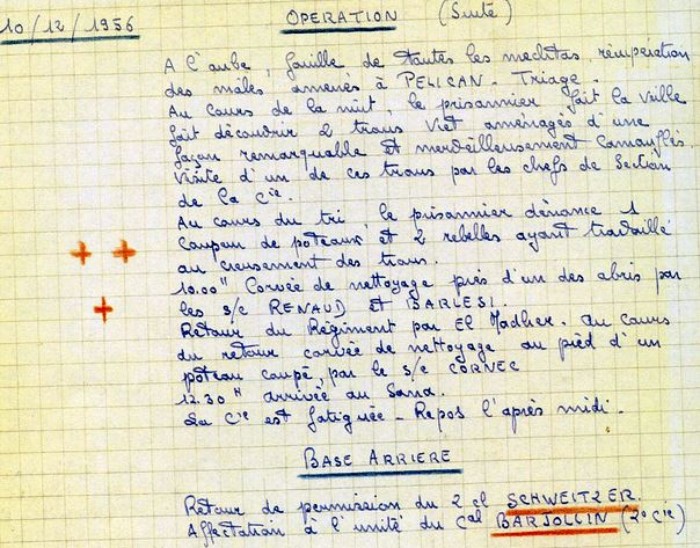 10/12/1956
OPERATION (Suite)
A l'aube, fouille de toutes les mechtas, récupération
des mâles amenés à PELICAN - Triage.
Au cours de la nuit, le prisonnier fait la veille
fait découvrir 2 trous Viet aménagés d'une
façon remarquable et merveilleusement camouflés.
Visite d'un de ces trous par les chefs de Section
de la Cie.
Au cours du tri, le prisonnier dénonce 1
coupeur de poteaux et 2 rebelles ayant travaillé
au creusement des trous.
10.00" Corvée de nettoyage près d'un des abris par
les s/c RENAUD et BARLESI.
Retour du Régiment par El Madher. Au cours
du retour corvée de nettoyage au pied d'un
poteau coupé, par le s/c CORNEC
12.30 H arrivée au Sana.
La Cie est fatiguée - Repos l'après midi.
BASE ARRIERE
Retour de permission du 2 cl SCHWEITZER.
Affectation à l'unité du Cal BARJOLLIN (2° Cie)